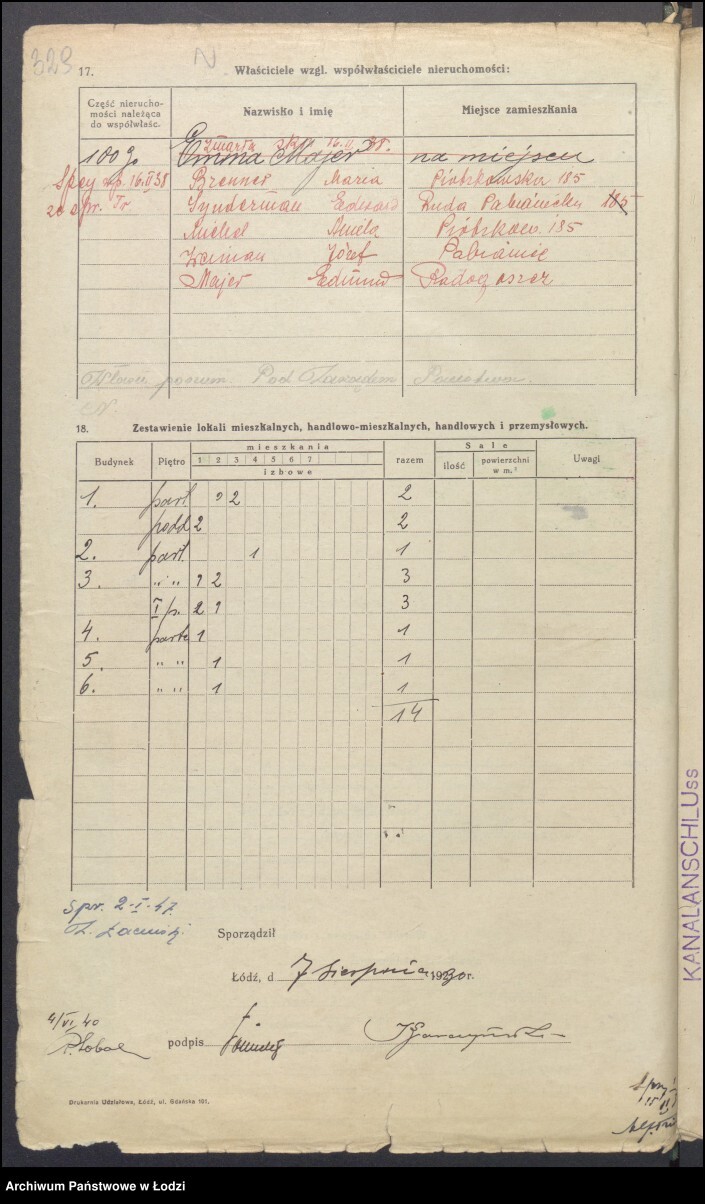 329 N
17. Właściciele wzgl. współwłaściciele nieruchomości:
Część nierucho-
mości należąca
do współwłaśc.
Nazwisko i imię
Miejsce zamieszkania
zmarła 16.II.38.
100% Emma Majer na miejscu
16.II 38 Brenner Maria Piotrkowska 185
Synderman Edward Ruda Pabianicka 185
Michel Amela Piotrkow. 185
Józef Pabianic
Majer Edmund Radogoszcz
Pod Zarządem
N.
18. Zestawienie lokali mieszkalnych, handlowo-mieszkalnych, handlowych i przemysłowych.
Budynek Piętro mieszkania razem Sale Uwagi
1 2 3 4 5 6 7
izbowe
ilość powierzchni
w m.²
1. part 2 2
podd 2 2
2. part. 1 1
3. „ „ 1 2 3
I p. 2 1 3
4. parte 1 1
5. „ „ 1 1
6. „ „ 1 1
14
Spr. 2-I-47.
Sporządził
Łódź, d 7 Sierpnia 1930 r.
4/VI 40
podpis
Drukarnia Udziałowa, Łódź, ul. Gdańska 101.
KANALANSCHLUss
Archiwum Państwowe w Łodzi